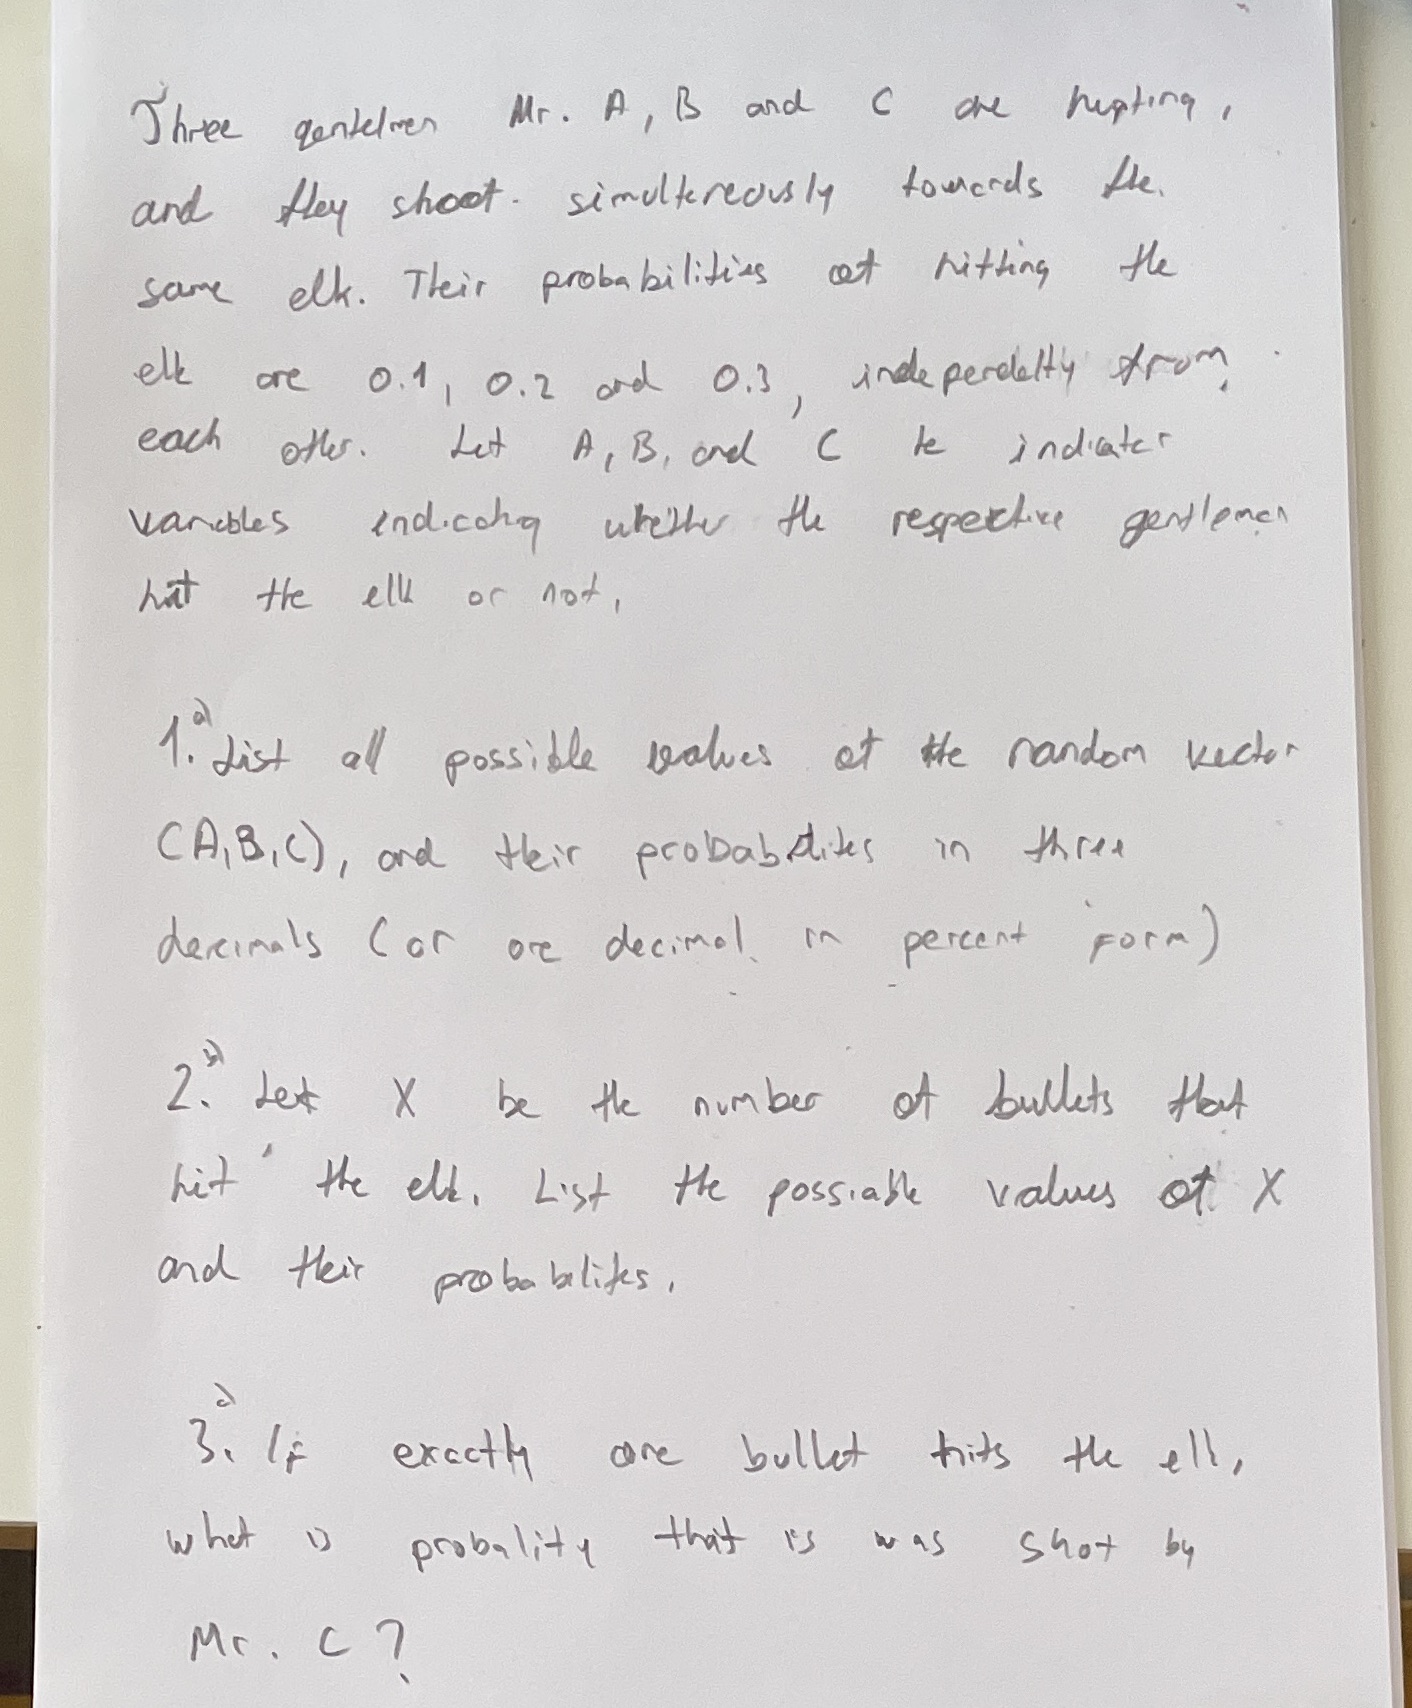 Three gentelmen Mr. A, B and C are hunting,
and they shoot simultaneously towards the
same elk. Their probabilities of hitting the
elk are 0.1, 0.2 and 0.3, independetly from
each other. Let A, B, and C be indicator
variables indicating whether the respective gentleman
hit the elk or not,
1. a) List all possible values of the random vector
(A,B,C), and their probabilites in three
decimals (or one decimal in percent form)
2. b) Let X be the number of bullets that
hit the elk. List the possiable values of X
and their probabilites.
3. c) If exactly one bullet hits the elk,
what is probality that is was shot by
Mr. C?